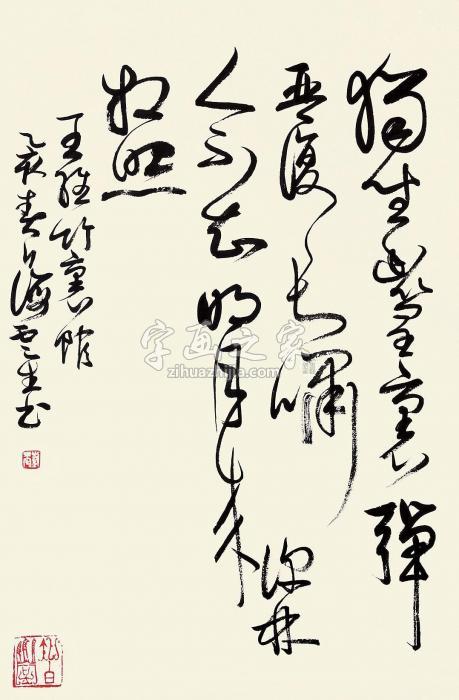 獨坐幽篁裏彈
琴復長嘯深林
人不知明月來
相照
王維竹裏館
乙亥春上海雲生书
字画之家
zihuazhijia.com